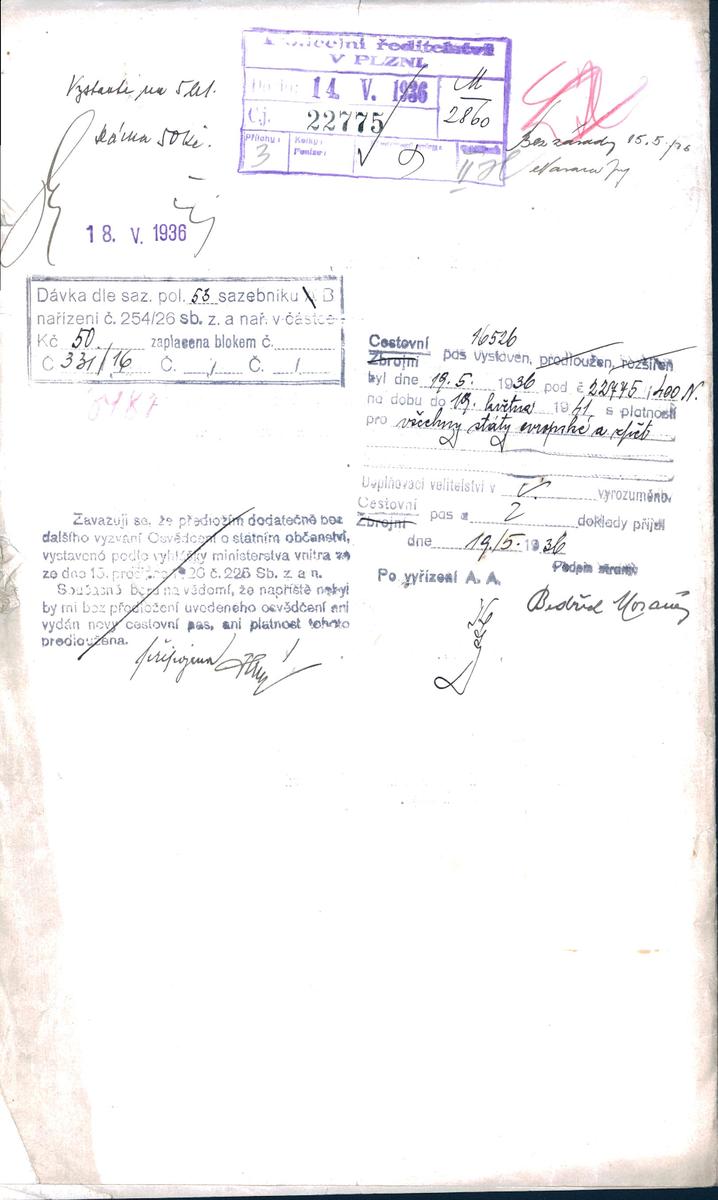 Policejní ředitelství
V PLZNI.
14. V. 1936
Čj. 22775
M
2860
Přílohy:
3
Kolky:
Peníze:
II
Vystavte na 5 let.
50 Kč.
18. V. 1936
Bez závady 15.5.
Dávka dle saz. pol. 53 sazebníku A B
nařízení č. 254/26 sb. z. a nař. v částce
Kč 50 zaplacena blokem č.
Č 331/16 Č. / Č. /
16526
Cestovní
Zbrojní pas vystaven, prodloužen, rozšířen
byl dne 19.5. 1936 pod č 22775 /400 N.
na dobu do 19. května 1941 s platností
pro všechny státy evropské a zpět
Doplňovací velitelství v vyrozuměno.
Cestovní
Zbrojní pas a 2 doklady přijal
dne 19/5. 1936
Podpis strany:
Po vyřízení A. A.
Bedřich
Zavazuji se, že předložím dodatečně bez
dalšího vyzvání Osvědčení o státním občanství,
vystavené podle vyhlášky ministerstva vnitra
ze dne 15. prosince 1926 č. 226 Sb. z. a n.
Současně beru na vědomí, že napříště nebyl
by mi bez předložení uvedeného osvědčení ani
vydán nový cestovní pas, ani platnost tohoto
prodloužena.
připojena